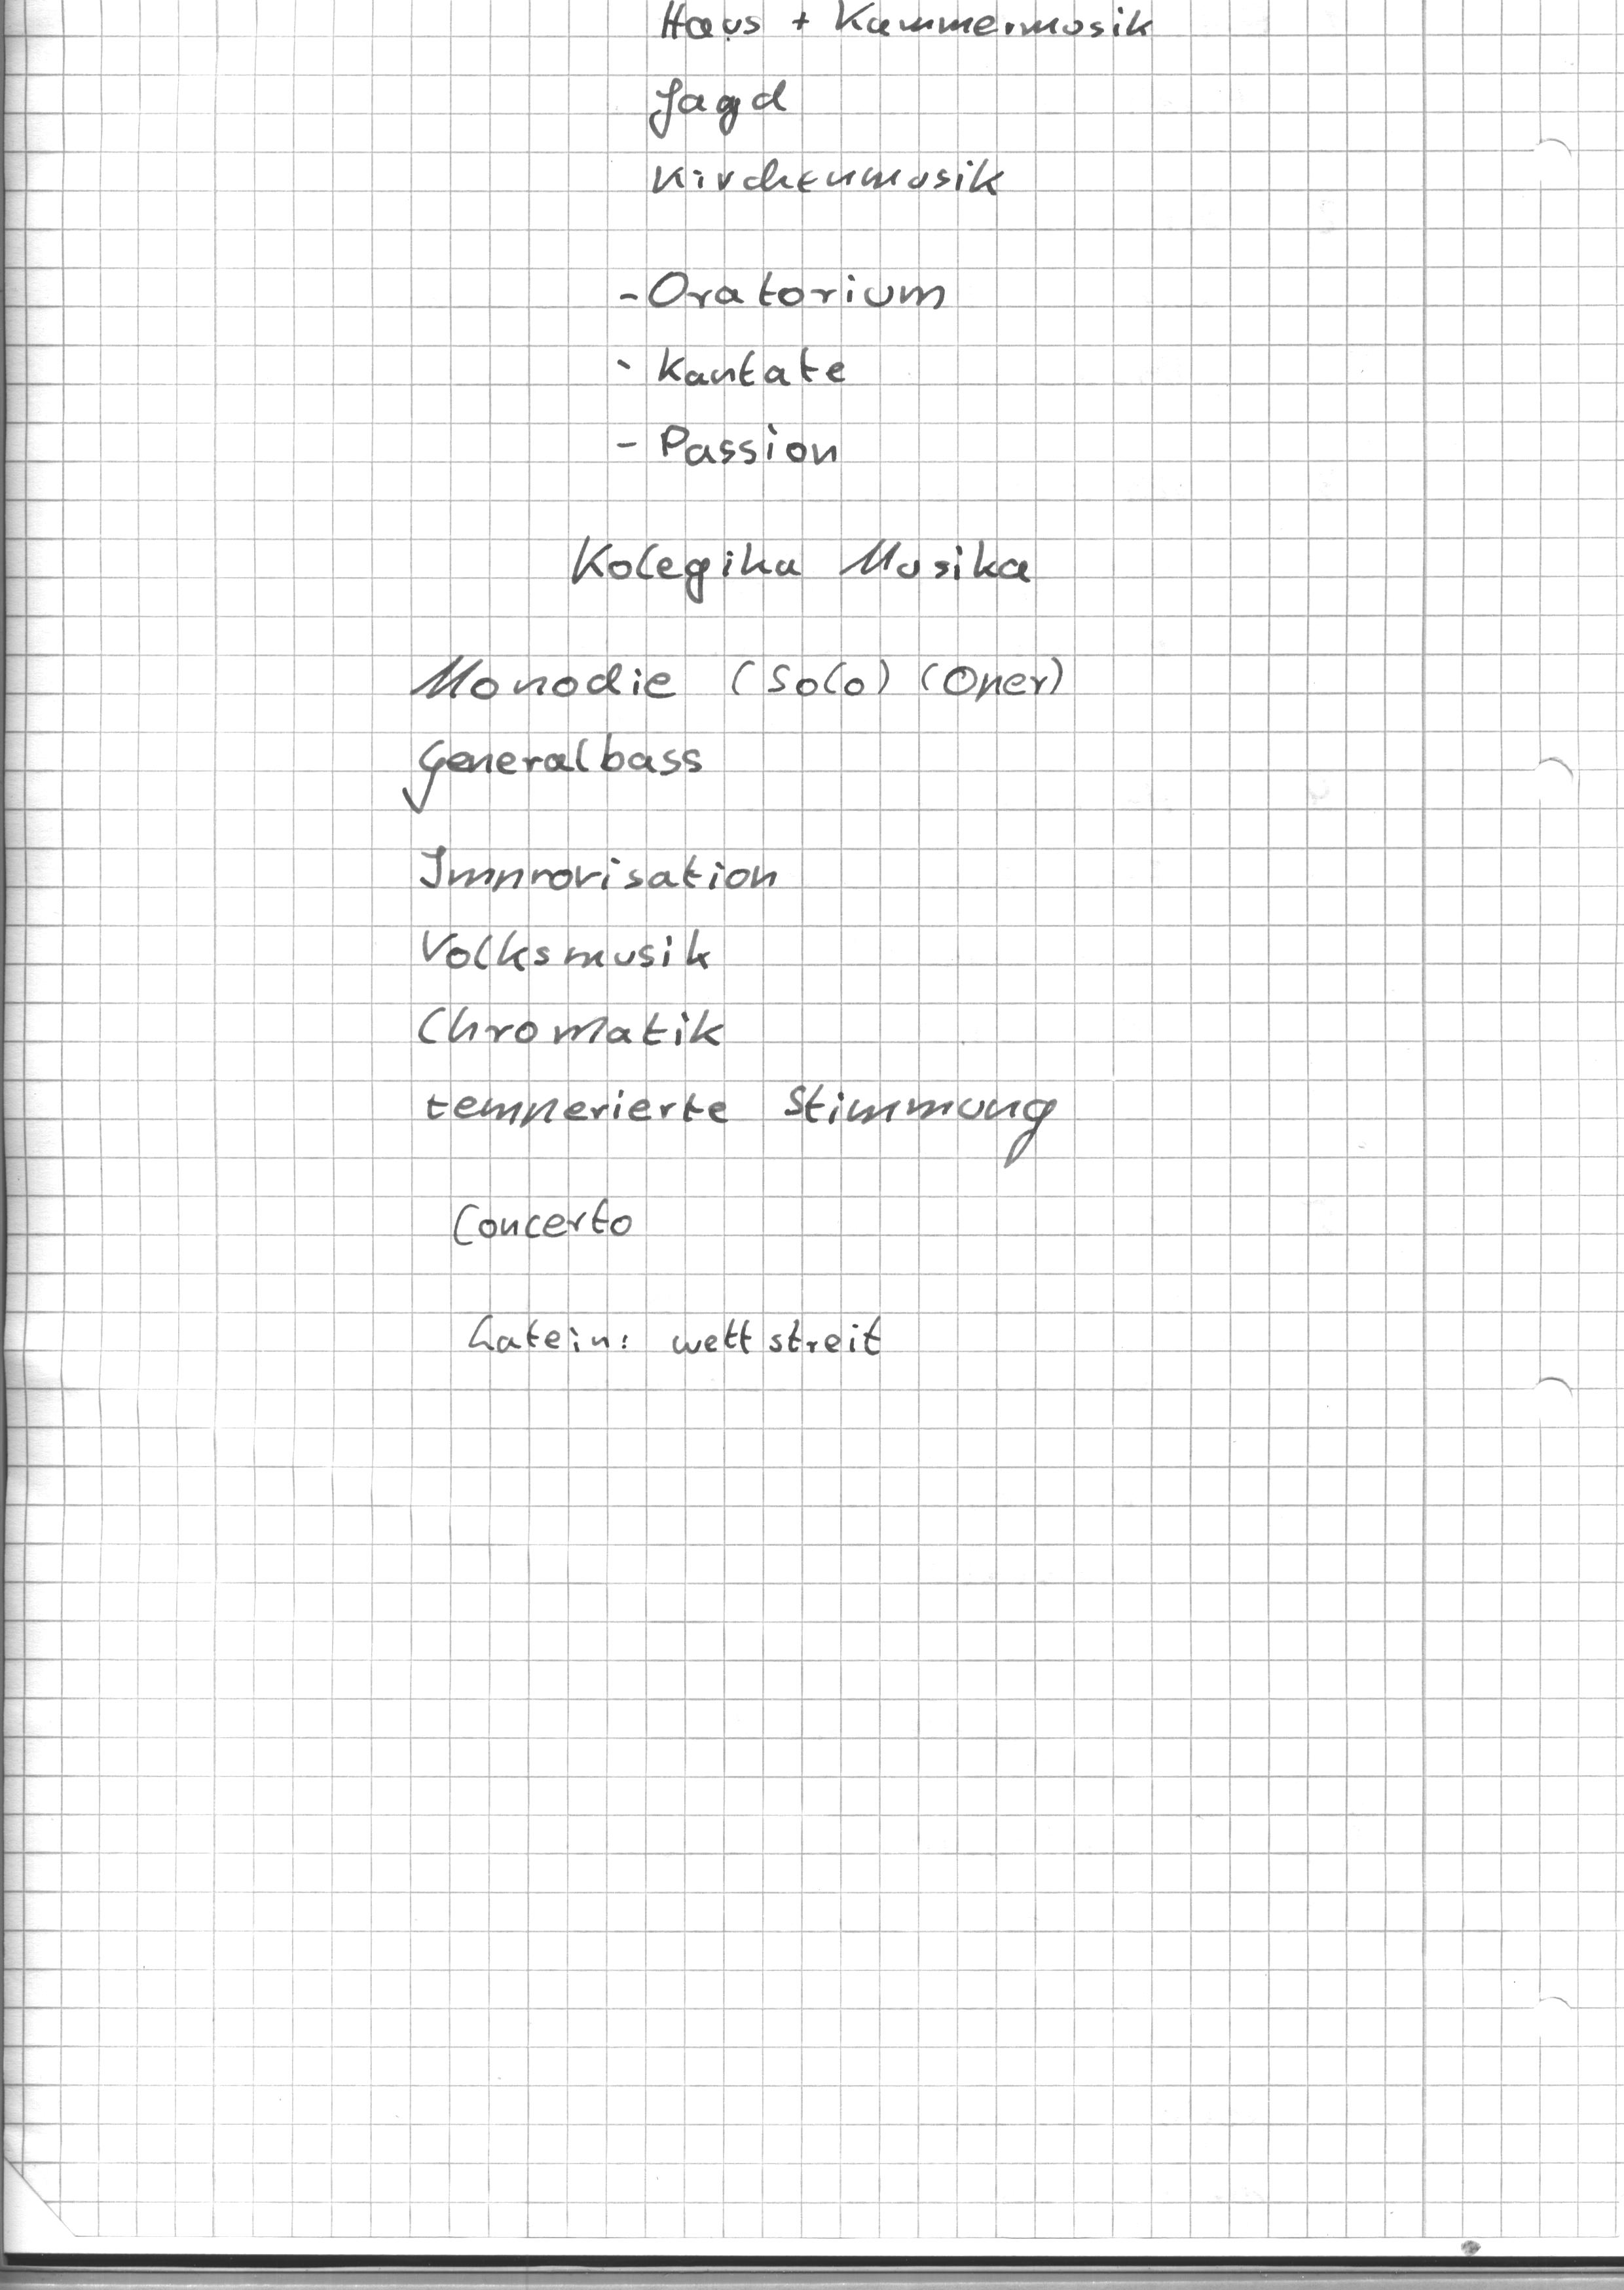 Haus + Kammermusik
Jagd
Kirchenmusik
- Oratorium
- Kantate
- Passion
Kolegika Musika
Monodie (Solo) (Oper)
Generalbass
Improvisation
Volksmusik
Chromatik
temperierte Stimmung
Concerto
Latein: wettstreit